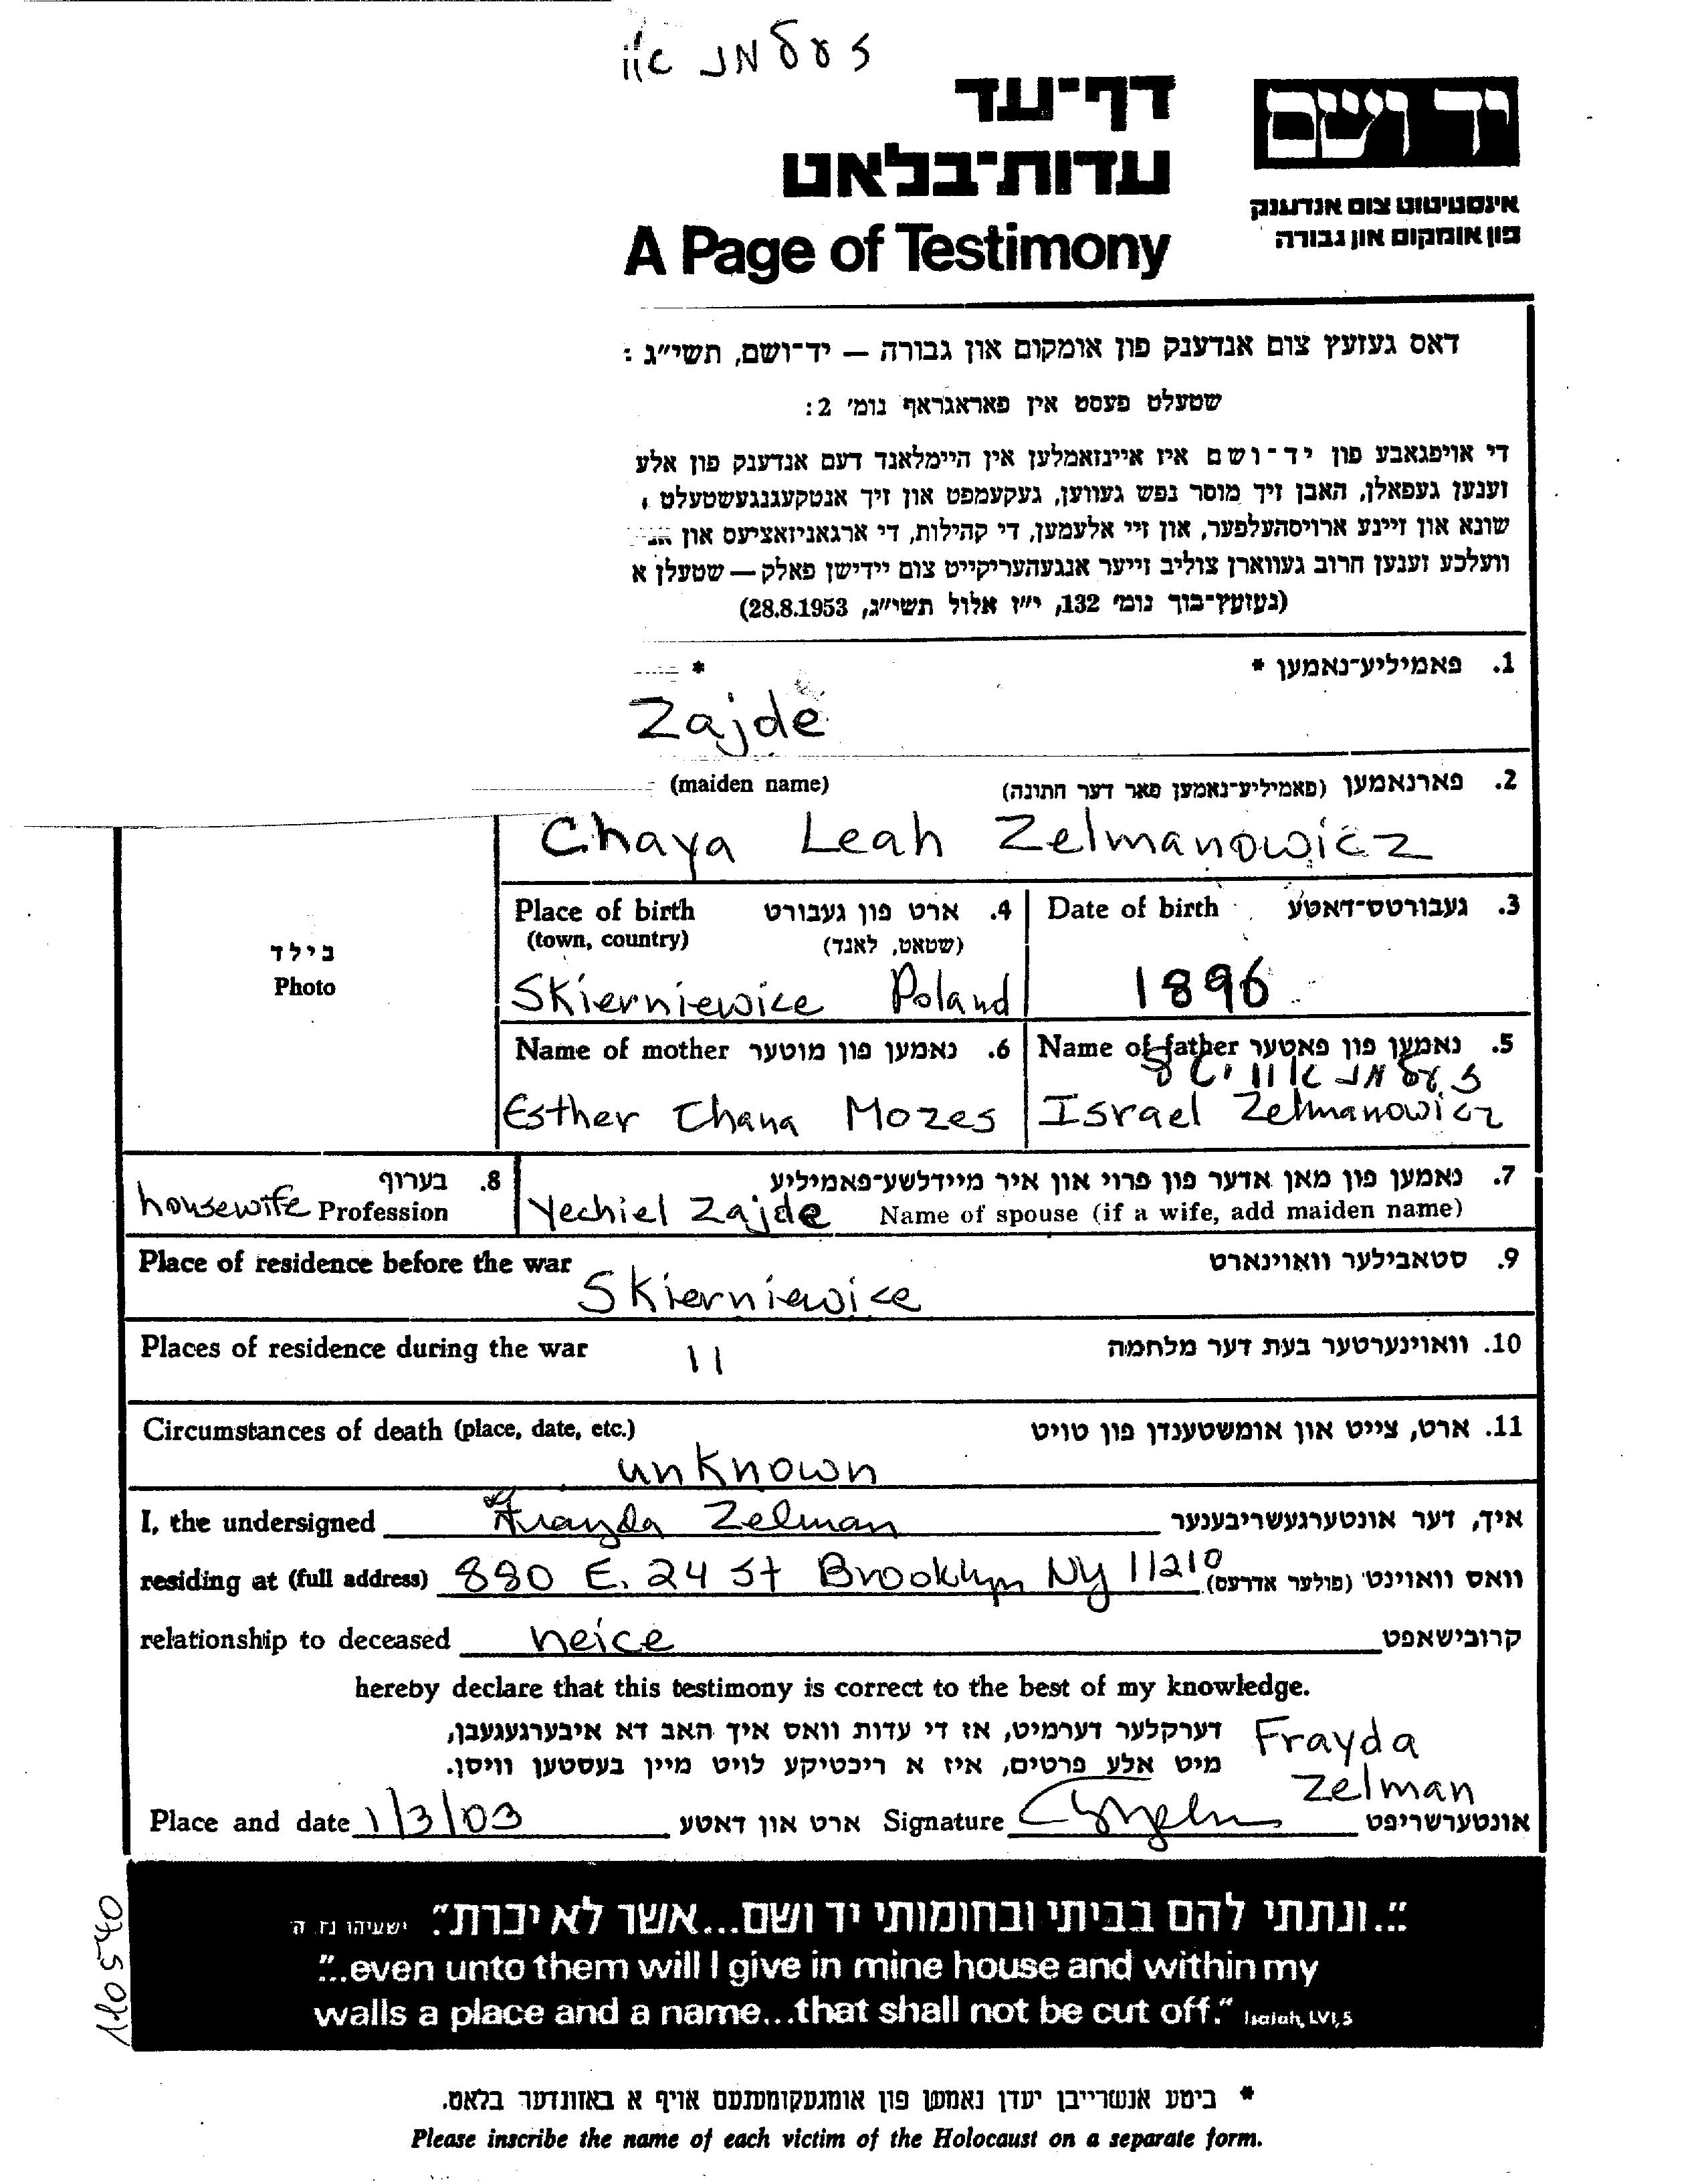 זעלמנ או
דף־עד
יד ושם
עדות־בלאט
אינסטיטוט צום אנדענק
פון אומקום און גבורה
A Page of Testimony
דאס געזעץ צום אנדענק פון אומקום און גבורה — יד־ושם, תשי״ג :
שטעלט פעסט אין פאראגראף נומ׳ 2:
די אויפגאבע פון יד־ושם איז איינזאמלען אין היימלאנד דעם אנדענק פון אלע
זענען געפאלן, האבן זיך מוסר נפש געווען, געקעמפט און זיך אנטקעגנגעשטעלט
שונא און זיינע ארויסהעלפער, און זיי אלעמען, די קהילות, די ארגאניזאציעס און
וועלכע זענען חרוב געווארן צוליב זייער אנגעהעריקייט צום יידישן פאלק — שטעלן א
(געזעץ־בוך נומ׳ 132, י״ז אלול תשי״ג, 28.8.1953)
1. פאמיליע־נאמען *
*
Zajde
2. פארנאמען (פאמיליע־נאמען פאר דער חתונה)
(maiden name)
Chaya Leah Zelmanowicz
3. געבורטס־דאטע Date of birth
4. ארט פון געבורט Place of birth
(שטאט, לאנד) (town, country)
בילד
Photo
1896
Skierniewice Poland
5. נאמען פון פאטער Name of father
6. נאמען פון מוטער Name of mother
Israel Zelmanowicz
Esther Chana Mozes
7. נאמען פון מאן אדער פון פרוי און איר מיידלשע־פאמיליע
8. בערוף
Yechiel Zajde Name of spouse (if a wife, add maiden name)
housewife Profession
9. סטאבילער וואוינארט
Place of residence before the war
Skierniewice
10. וואוינערטער בעת דער מלחמה
Places of residence during the war 11
11. ארט, צייט און אומשטענדן פון טויט
Circumstances of death (place, date, etc.)
unknown
I, the undersigned Frayda Zelman איך, דער אונטערגעשריבענער
residing at (full address) 880 E. 24 St Brooklyn Ny 11210 וואס וואוינט (פולער אדרעס)
relationship to deceased neice קרובישאפט
hereby declare that this testimony is correct to the best of my knowledge.
דערקלער דערמיט, אז די עדות וואס איך האב דא איבערגעגעבן,
מיט אלע פרטים, איז א ריכטיקע לויט מיין בעסטען וויסן.
Frayda
Zelman
Place and date 1/3/03 ארט און דאטע Signature אונטערשריפט
״...ונתתי להם בביתי ובחומותי יד ושם...אשר לא יכרת״ ישעיהו נו ה
"...even unto them will I give in mine house and within my
walls a place and a name...that shall not be cut off." Isaiah, LVI, 5
110540
* ביטע אנשרייבן יעדן נאמען פון אומגעקומענעם אויף א באזונדער בלאט.
Please inscribe the name of each victim of the Holocaust on a separate form.